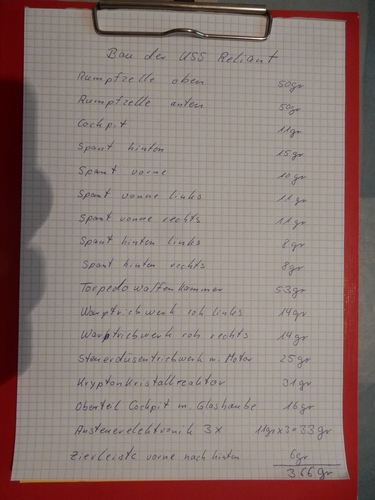 Bau der USS Reliant
Rumpfzelle oben 50gr
Rumpfzelle unten 50gr
Cockpit 11gr
Spant hinten 15gr
Spant vorne 10gr
Spant vorne links 11gr
Spant vorne rechts 11gr
Spant hinten links 8gr
Spant hinten rechts 8gr
Torpedo Waffenkammer 53gr
Warptriebwerk roh links 14gr
Warptriebwerk roh rechts 14gr
Steuerdüsentriebwerk m. Motor 25gr
Kryptonkristallreaktor 31gr
Oberteil Cockpit m. Glashaube 16gr
Ansteuerelektronik 3x 11grx3=33gr
Zierleiste vorne nach hinten 6gr
366gr